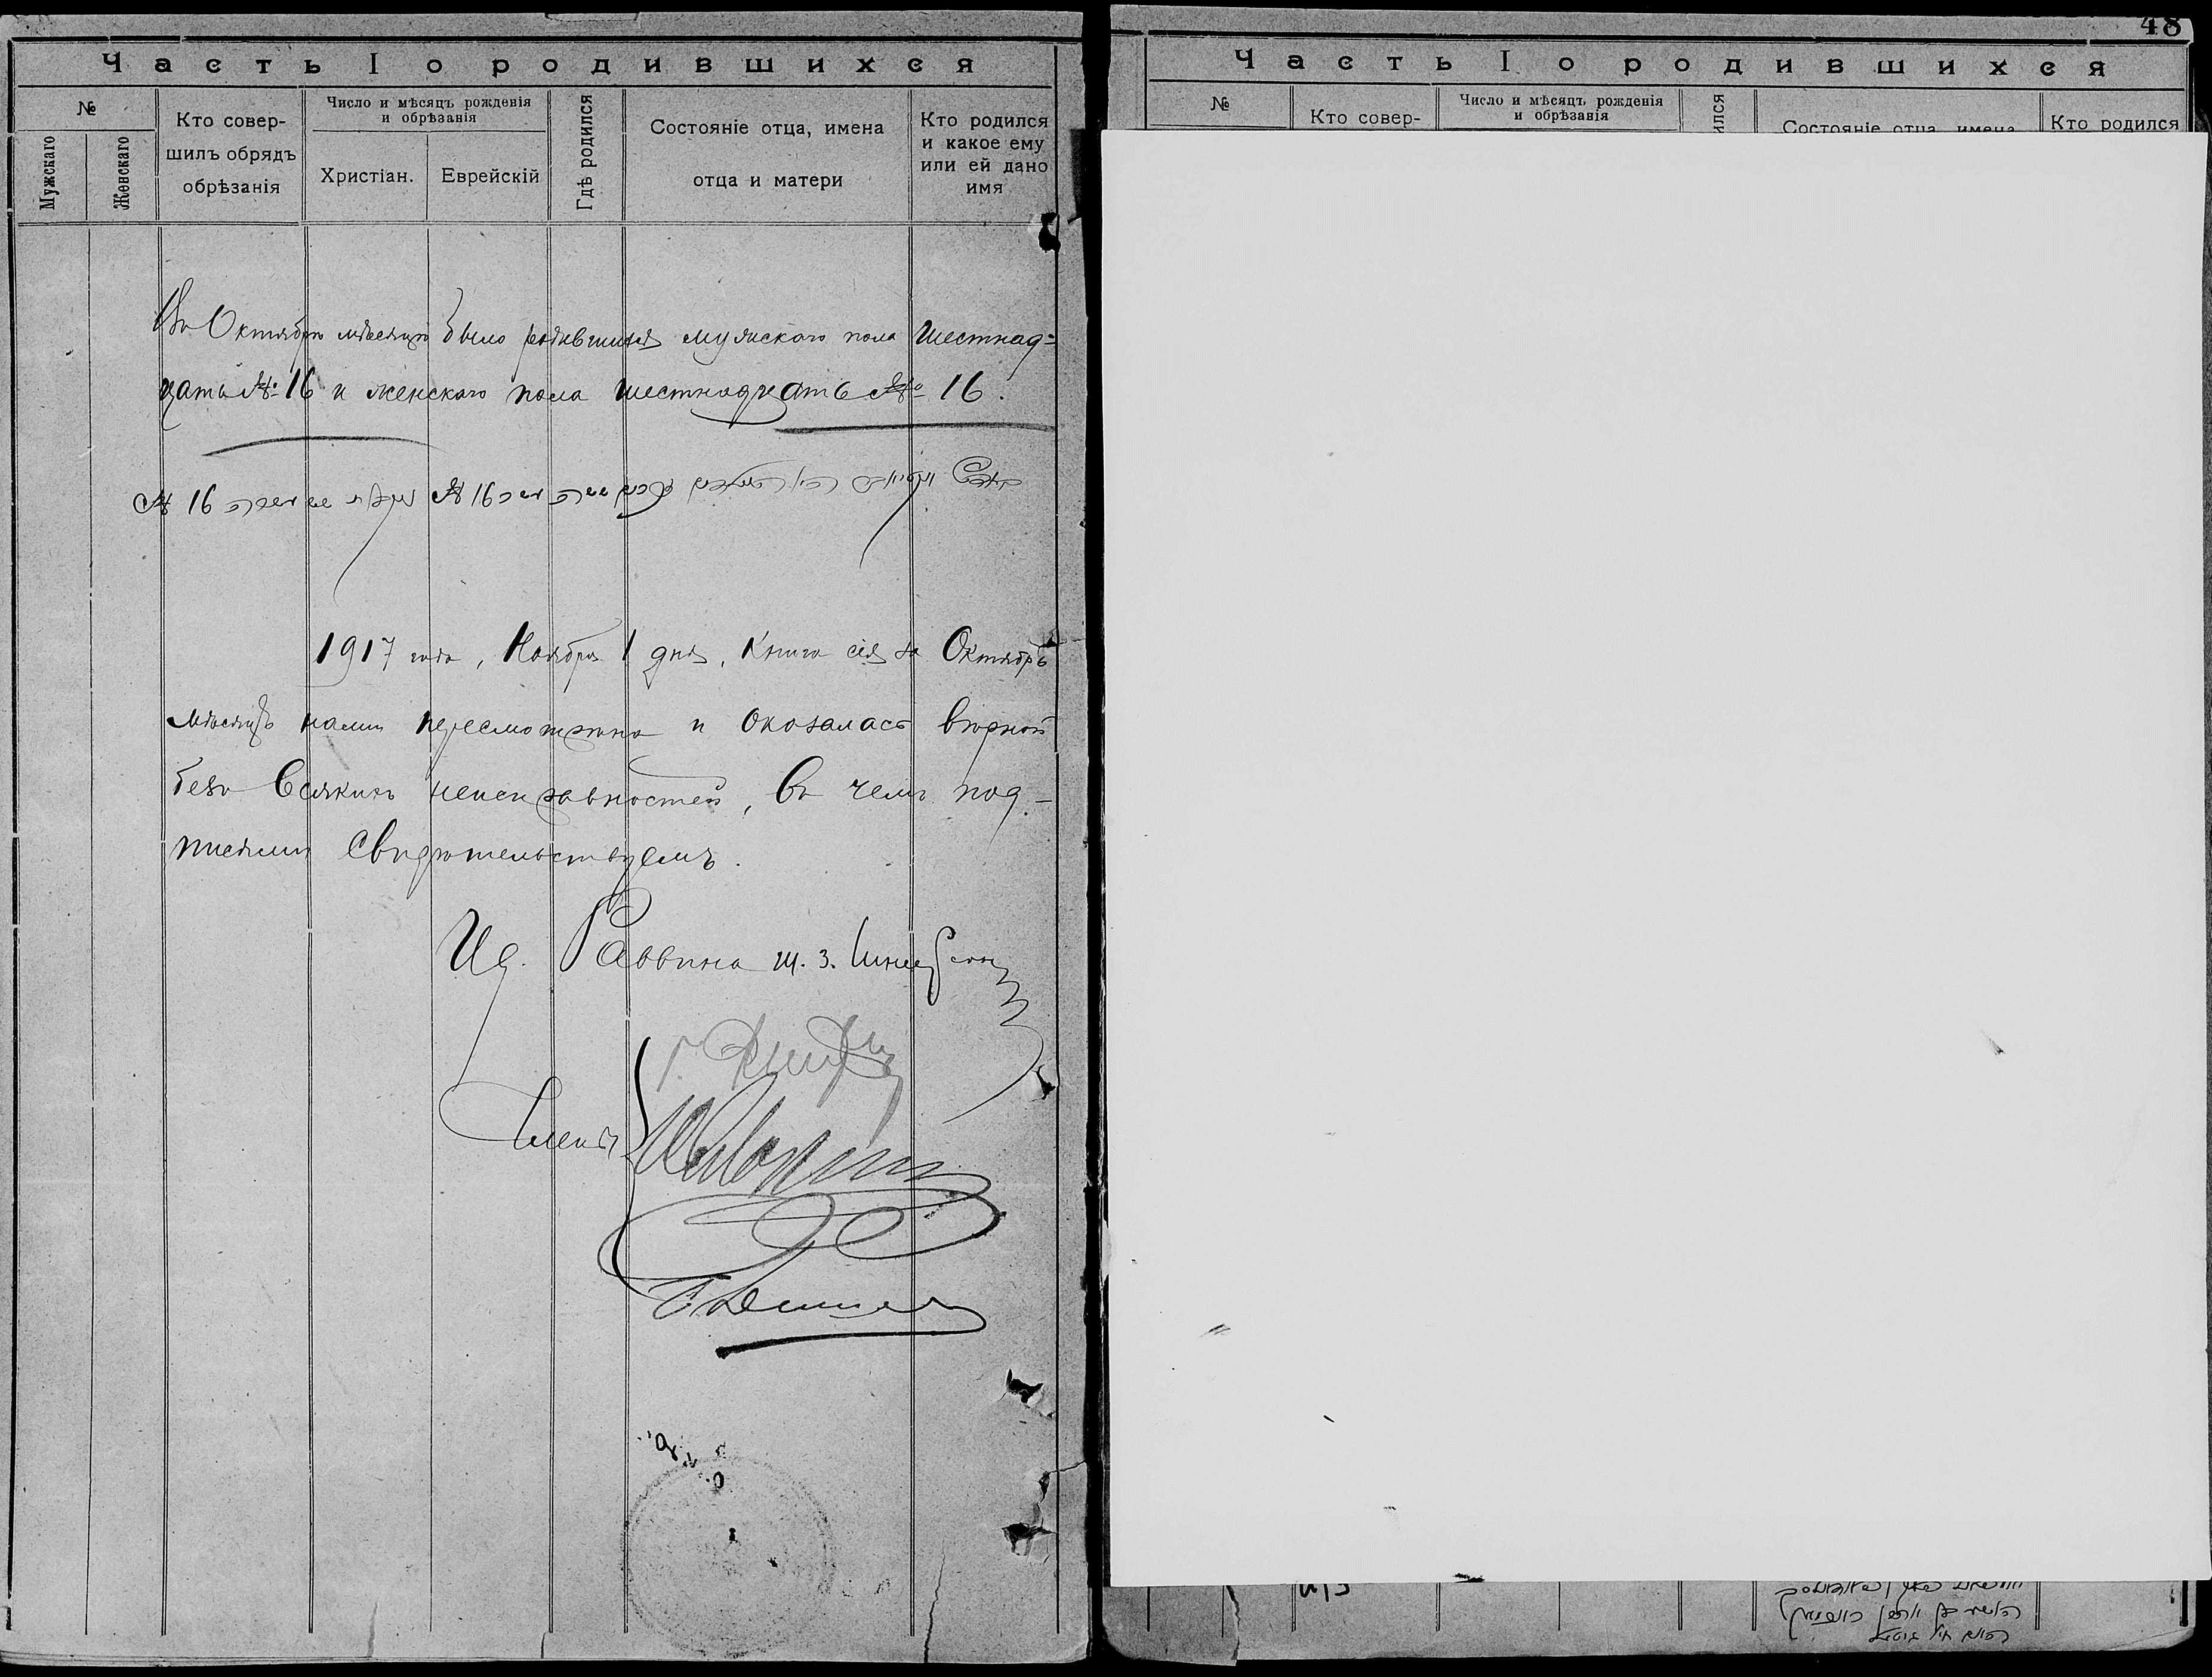 Часть I о родившихся
№
Мужскаго
Женскаго
Кто совер-
шилъ обрядъ
обрѣзанія
Число и мѣсяцъ рожденія
и обрѣзанія
Христіан.
Еврейскій
Гдѣ родился
Состояніе отца, имена
отца и матери
Кто родился
и какое ему
или ей дано
имя
Въ Октябрѣ мѣсяцѣ было родившихся мужскаго пола шестнад-
цать № 16 и женскаго пола шестнадцать № 16.
№ 16 № 16
1917 года, Ноября 1 дня, Книга сія за Октябрь
мѣсяцъ нами пересмотрѣна и оказалась вѣрной
безъ всякихъ неисправностей, въ чемъ под-
писями свидѣтельствуемъ.
И. д. Раввина Ш. З.
Члены
48
Часть I о родившихся
№
Кто совер-
Число и мѣсяцъ рожденія
и обрѣзанія
ился
Состояніе отца, имена
Кто родился